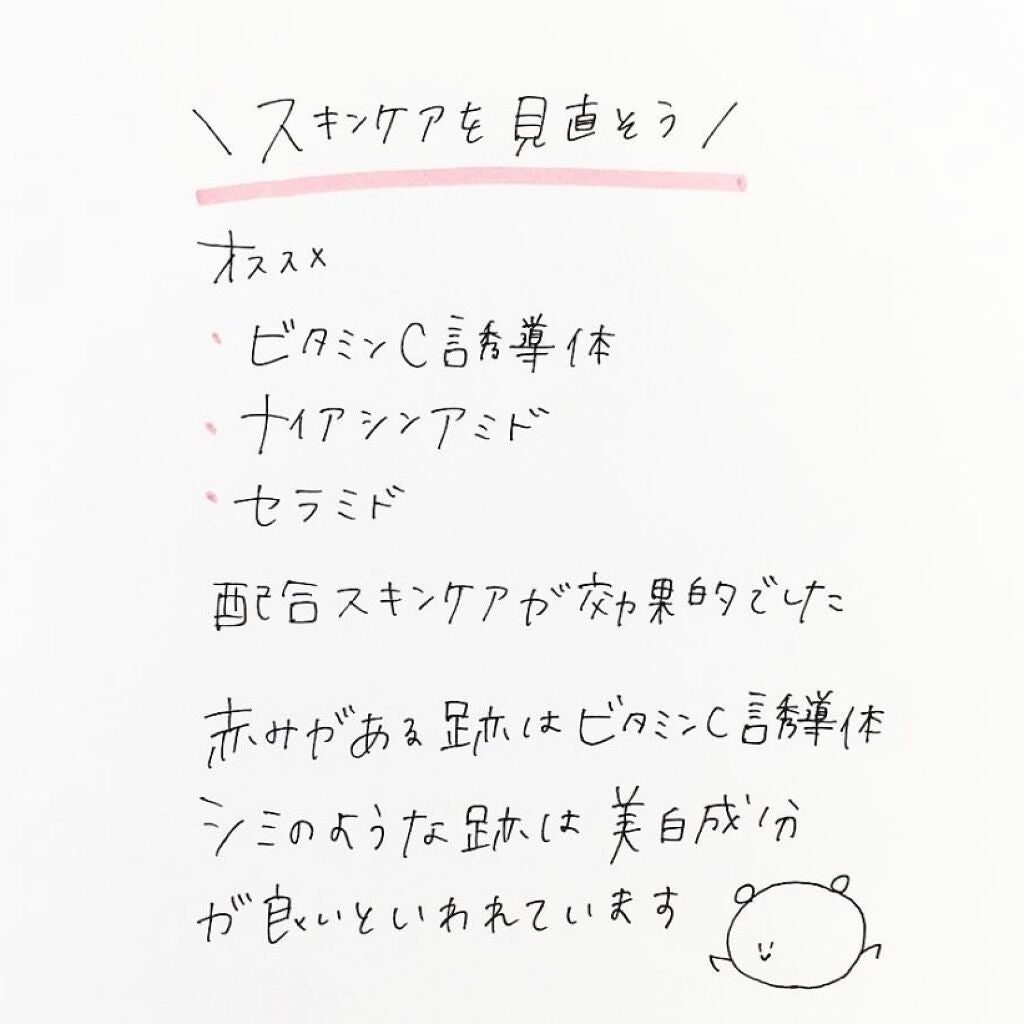 \ スキンケアを見直そう /
オススメ
・ビタミンC誘導体
・ナイアシンアミド
・セラミド
配合スキンケアが効果的でした
赤みがある跡はビタミンC誘導体
シミのような跡は美白成分
が良いといわれています